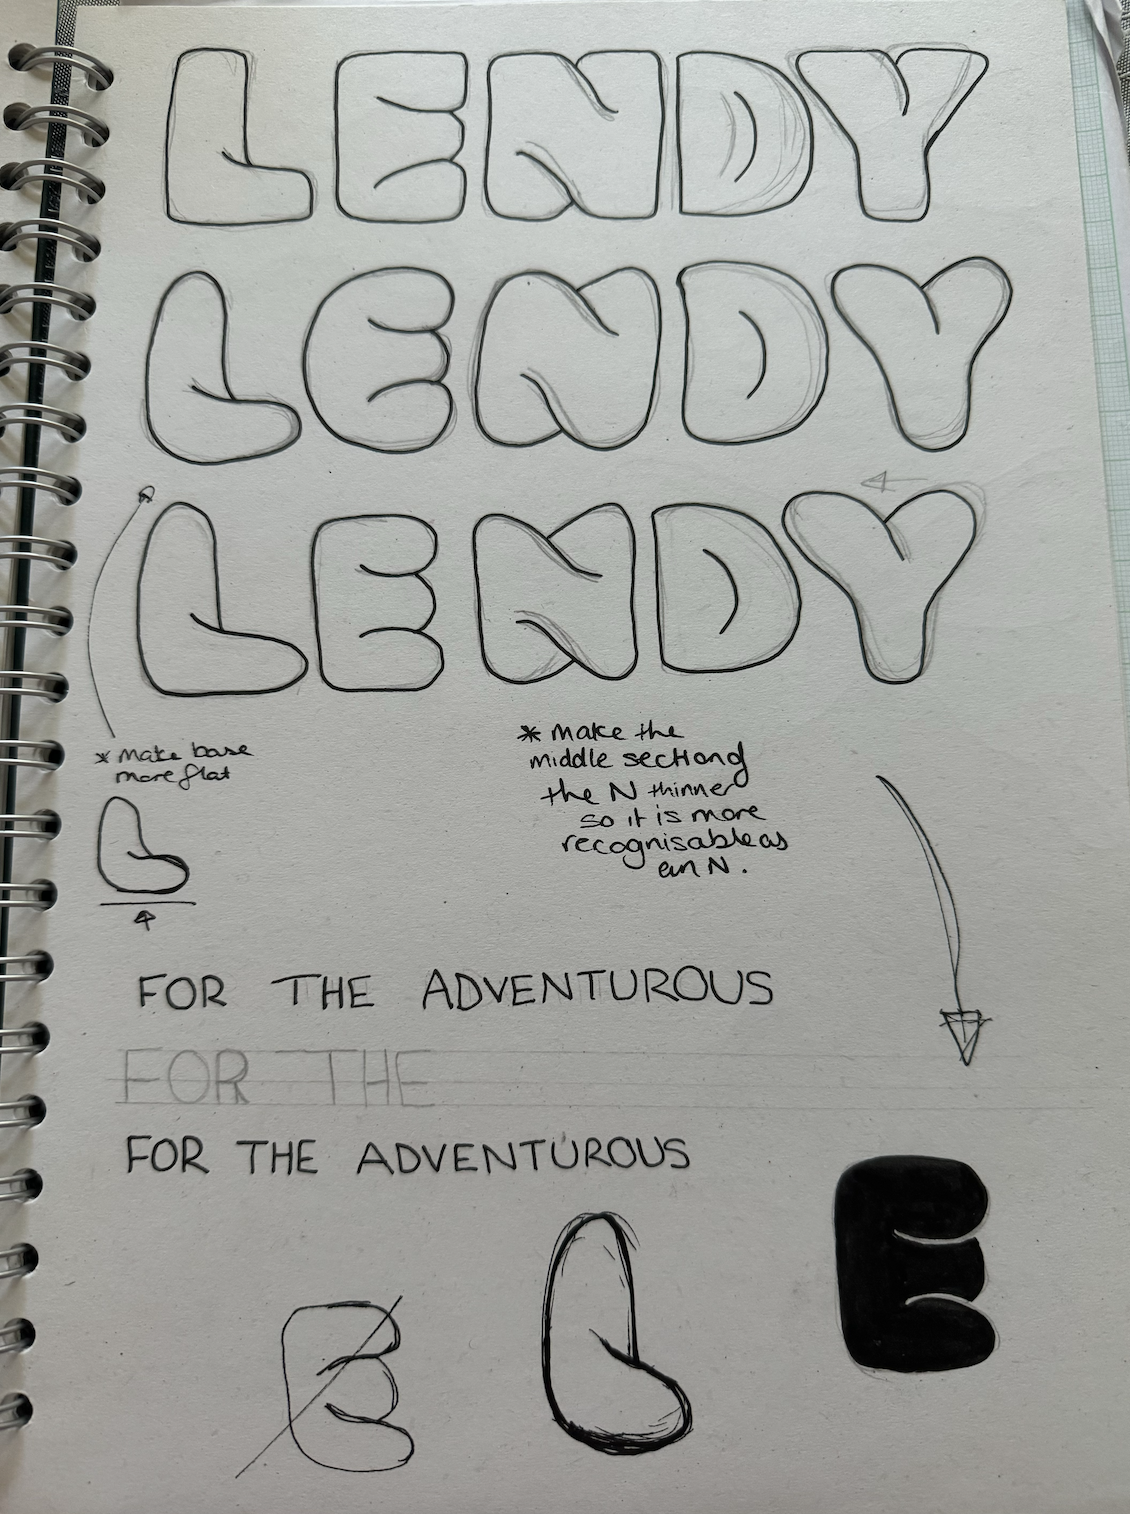 LENDY
LENDY
LENDY
* make base
more flat
L
* make the
middle section of
the N thinner
so it is more
recognisable as
an N.
FOR THE ADVENTUROUS
FOR THE
FOR THE ADVENTUROUS
E
L
E